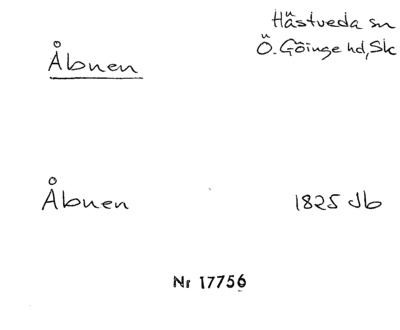 Hästveda sn
Ö. Göinge hd, Sk
Åbnen
Åbnen 1825 Jb
Nr 17756